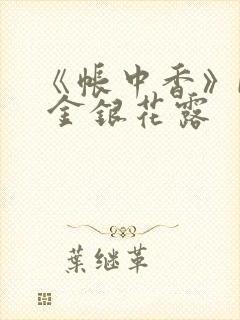 《帐中香》
金银花露
葉继革